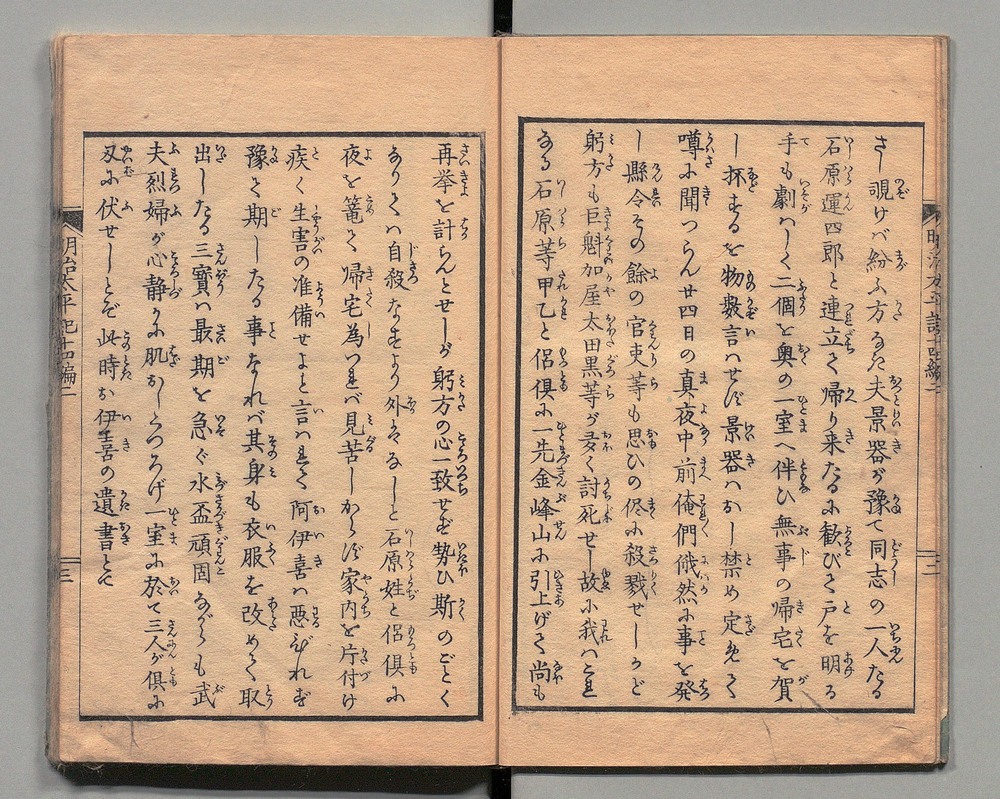 さし覗けバ紛ふ方なき夫景器が豫て同志の一人たる
石原運四郎と連立て帰り来たるに歓びて戸を明る
手も劇ハしく二個を奥の一室へ伴ひ無事の帰宅を賀
し抔するを物数言ハせず景器ハおし禁め定めて
噂に聞つらん廿四日の真夜中前俺們俄然に事を発
し縣令その餘の官吏等も思ひの侭に殺戮せしかど
躬方も巨魁加屋太田黒等が多く討死せし故に我ハこれ
なる石原等甲乙と侶倶に一先金峰山に引上げて尚も
明治太平記十四編二
三
再挙を計らんとせしが躬方の心一致せず勢ひ斯のごとく
なりてハ自殺なすより外なしと石原姓と侶倶に
夜を篭て帰宅為つれバ見苦しからず家内を片付け
疾く生害の准備せよと言ハれて阿伊喜ハ悪びれず
豫て期したる事なれバ其身も衣服を改めて取
出したる三寳ハ最期を急ぐ水盃頑固ながらも武
夫烈婦が心静かに肌おしくつろげ一室に於て三人が倶に
刄に伏せしとぞ此時お伊喜の遺書とて
明治太平記十四編二
三